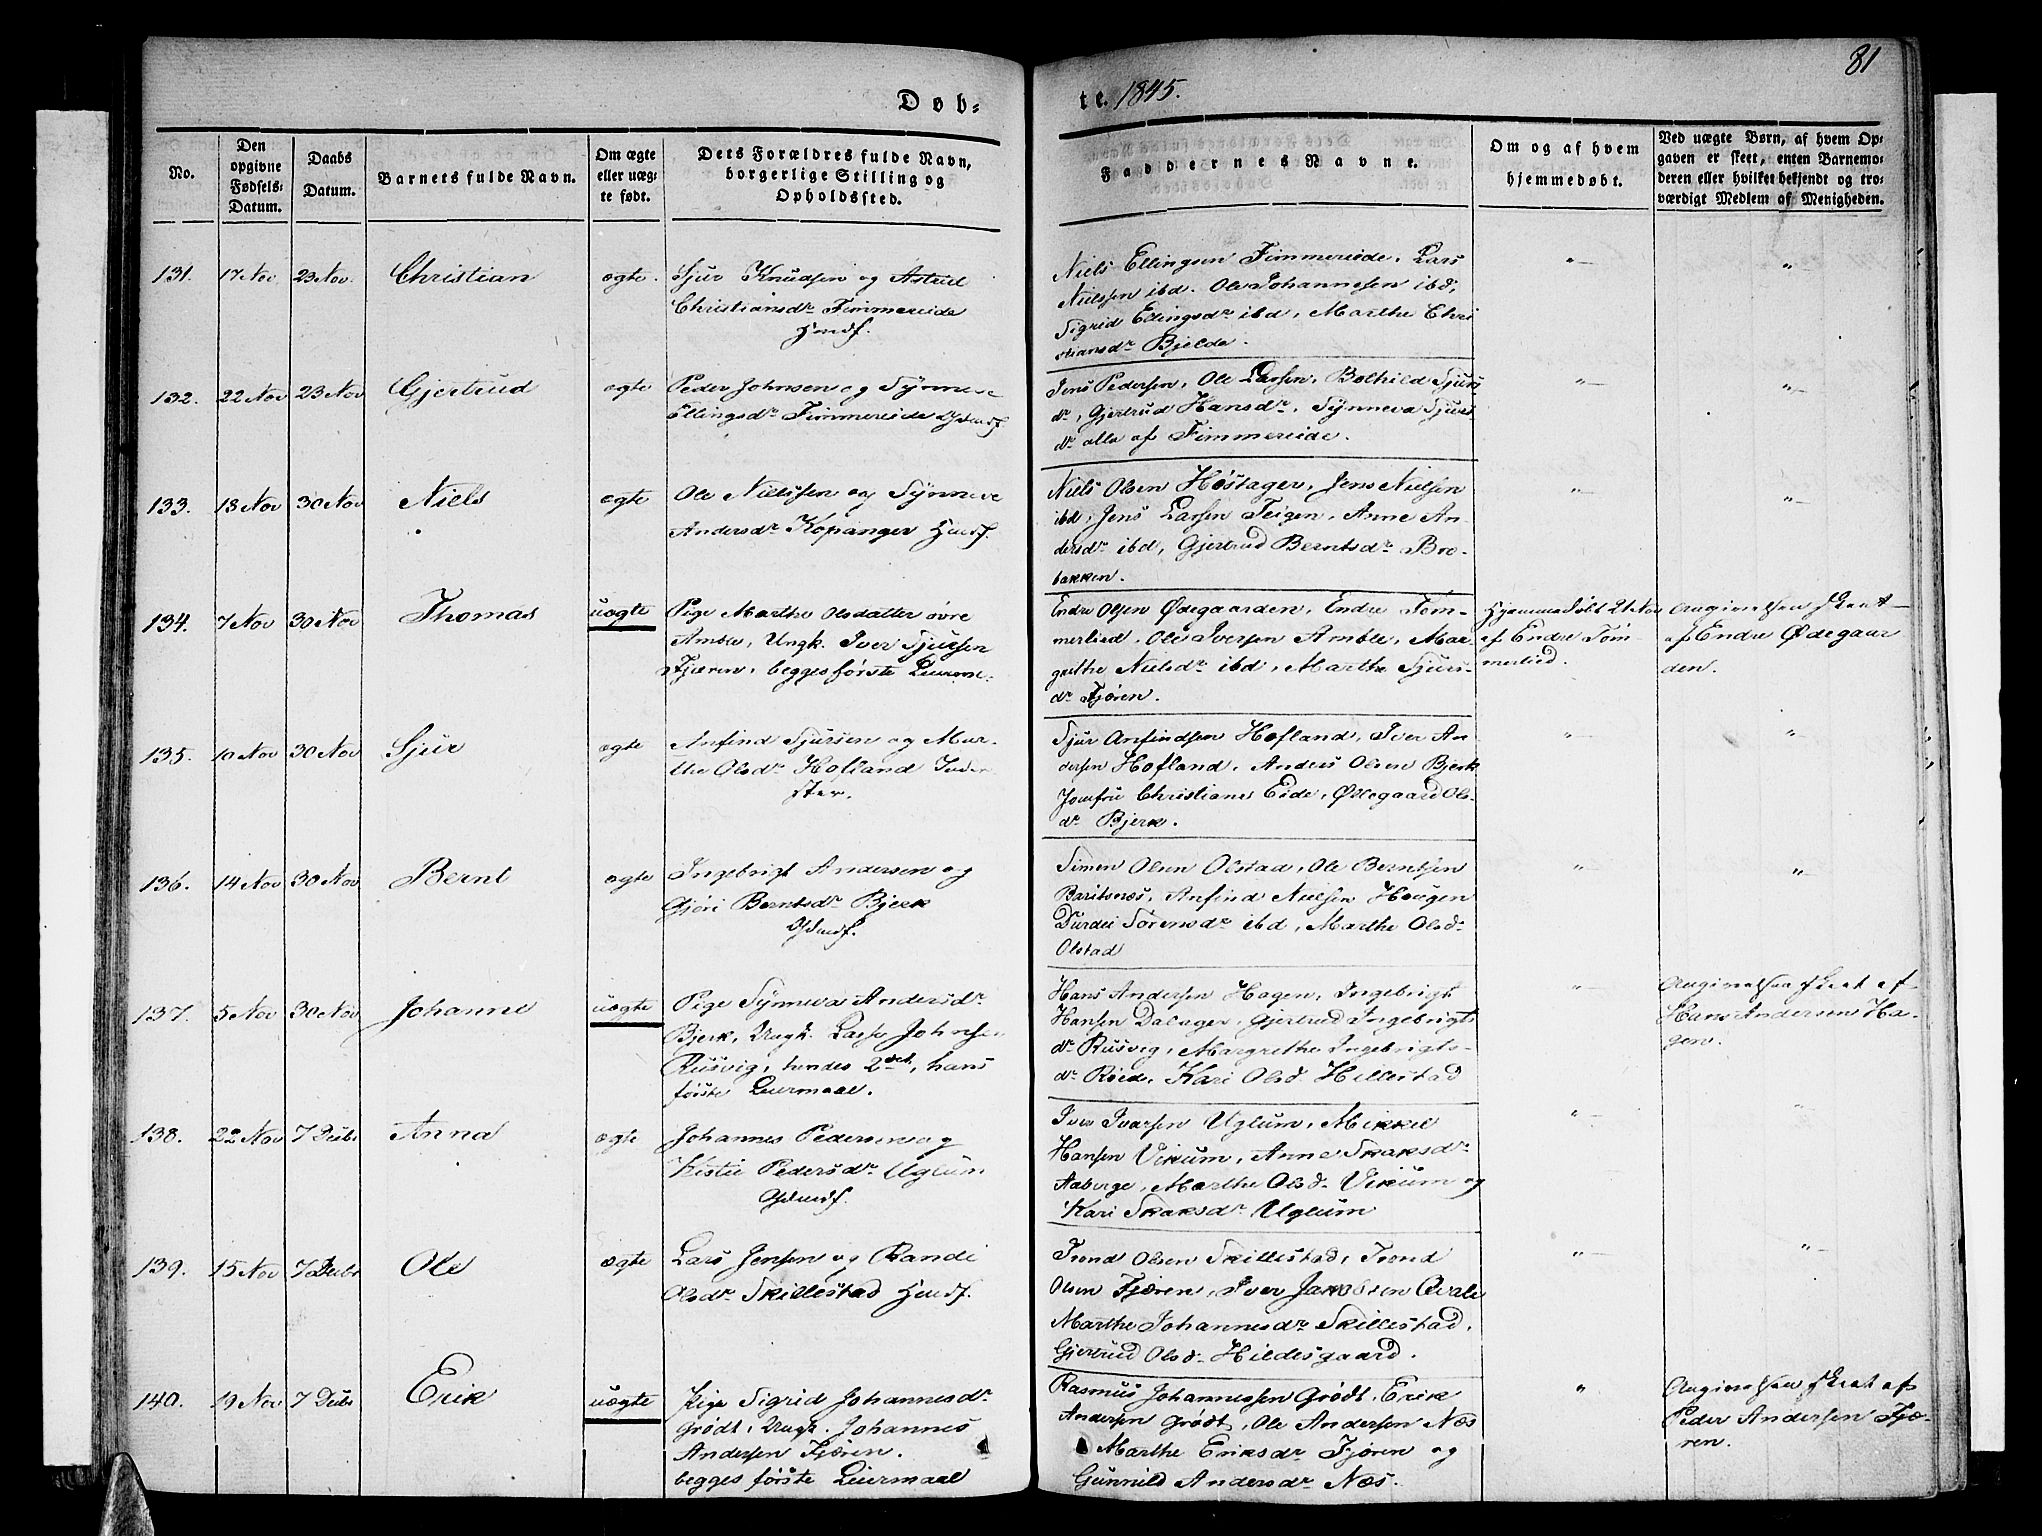 81
Døb=
te. 1845.
No.
Den
opgivne
Fødsels-
Datum.
Daabs
Datum.
Barnets fulde Navn.
Om ægte
eller uæg-
te født.
Dets Forældres fulde Navn,
borgerlige Stilling og
Opholdssted.
Faddernes Navne.
Om og af hvem
hjemmedøbt.
Ved uægte Børn, af hvem Op-
gaven er skeet, enten Barnemo-
deren eller hvilket bekjendt og tro-
værdigt Medlem af Menigheden.
131. 17 Nov 23 Nov. Christian ægte.
Sjur Knudsen og Astrid
Christiansdr Fimmereide
Huusf.
Niels Ellingsen Fimmereide, Lars
Nielsen ibd. Ole Johannesen ibd,
Sigrid Ellingsdr ibd, Marthe Chri
stiansdr Bjelde.
132. 22 Nov 23 Nov Gjertrud ægte
Peder Johnsen og Synneve
Ellingsdr Fimmereide Gdmdf.
Jens Pedersen, Ole Larsen, Bothild Sjurs
dr, Gjertrud Hansdr, Synneva Sjurs
dr alle af Fimmereide.
133. 13 Nov 30 Nov Niels ægte
Ole Nielssen og Synneve
Andersdr Kopanger Huusf.
Niels Olsen Høstager, Jens Nielsen
ibd, Jens Larsen Teigen, Anne An-
dersdr ibd, Gjertrud Berntsdr Bro-
bakken.
134. 7 Nov 30 Nov Thomas uægte
Pige Marthe Olsdatter øvre
Amble, Ungk. Iver Sjursen
Fjæren, begges første Leierm.
Endre Olsen Ødegaarden, Endre Tøm-
merlied, Ole Iversen Amble, Mar-
grethe Nielsdr ibd, Marthe Sjurs-
dr Fjøren.
Hjemmedøbt 21 Nov
af Endre Tøm-
merlied.
Angivelsen skeet
af Endre Ødegaar
den.
135. 10 Nov 30 Nov Sjur ægte
Anfind Sjursen og Mar-
the Olsdr Hofland Inder-
ster.
Sjur Anfindsen Hofland, Iver An-
dersen Hofland, Anders Olsen Bjerk
Jomfru Christiane Eide, Ødegaard Ols-
dr Bjerk.
136. 14 Nov 30 Nov Bernt ægte
Ingebrigt Andersen og
Gjøri Berntsdr Bjerk
Gdmdf.
Simen Olsen Olstad, Ole Berntsen
Baritsnæs, Anfind Nielsen Hougen
Durdei Sørensdr ibd, Marthe Olsd-
Olstad
137. 5 Nov 30 Nov Johanne uægte
Pige Synneva Andersdr
Bjerk, Ungk. Lasse Johnsen
Rusvig, hendes 2det, hans
første Leiermaal.
Hans Andersen Hagen, Ingebrigt
Hansen Dalager, Gjertrud Ingebrigts
dr Rusvig, Margrethe Ingebrigts-
dr Røed, Kari Olsd. Hillestad
Angivelsen skeet af
Hans Andersen Ha-
gen.
138. 22 Nov 7 Decbr Anna ægte
Johannes Pedersen og
Kistie Pedersdr Uglum
Gdmdf.
Iver Ivarsen Uglum, Mikkel
Hansen Vikum, Anne Skaksdr
Aaberge, Marthe Olsd. Vikum og
Kari Skaksdr Uglum
139. 15 Nov 7 Decbr Ole ægte
Lars Jensen og Randi
Olsdr Skillestad Huusf.
Trond Olsen Skillestad, Trond
Olsen Fjæren, Iver Jakobsen Qvale
Marthe Johannesdr Skillestad,
Gjertrud Olsd. Hildesgaard.
140. 19 Nov 7 Decbr Erik uægte
Pige Sigrid Johannesdr
Grødt, Ungk. Johannes
Andersen Fjæren.
begges første Leiermaal
Rasmus Johannessen Grødt, Erik
Andersen Grødt, Ole Andersen Næs
Marthe Eriksdr Fjøren og
Gunnild Andersdr Næs.
Angivelsen skeet af
Peder Andersen Fjæ-
ren.